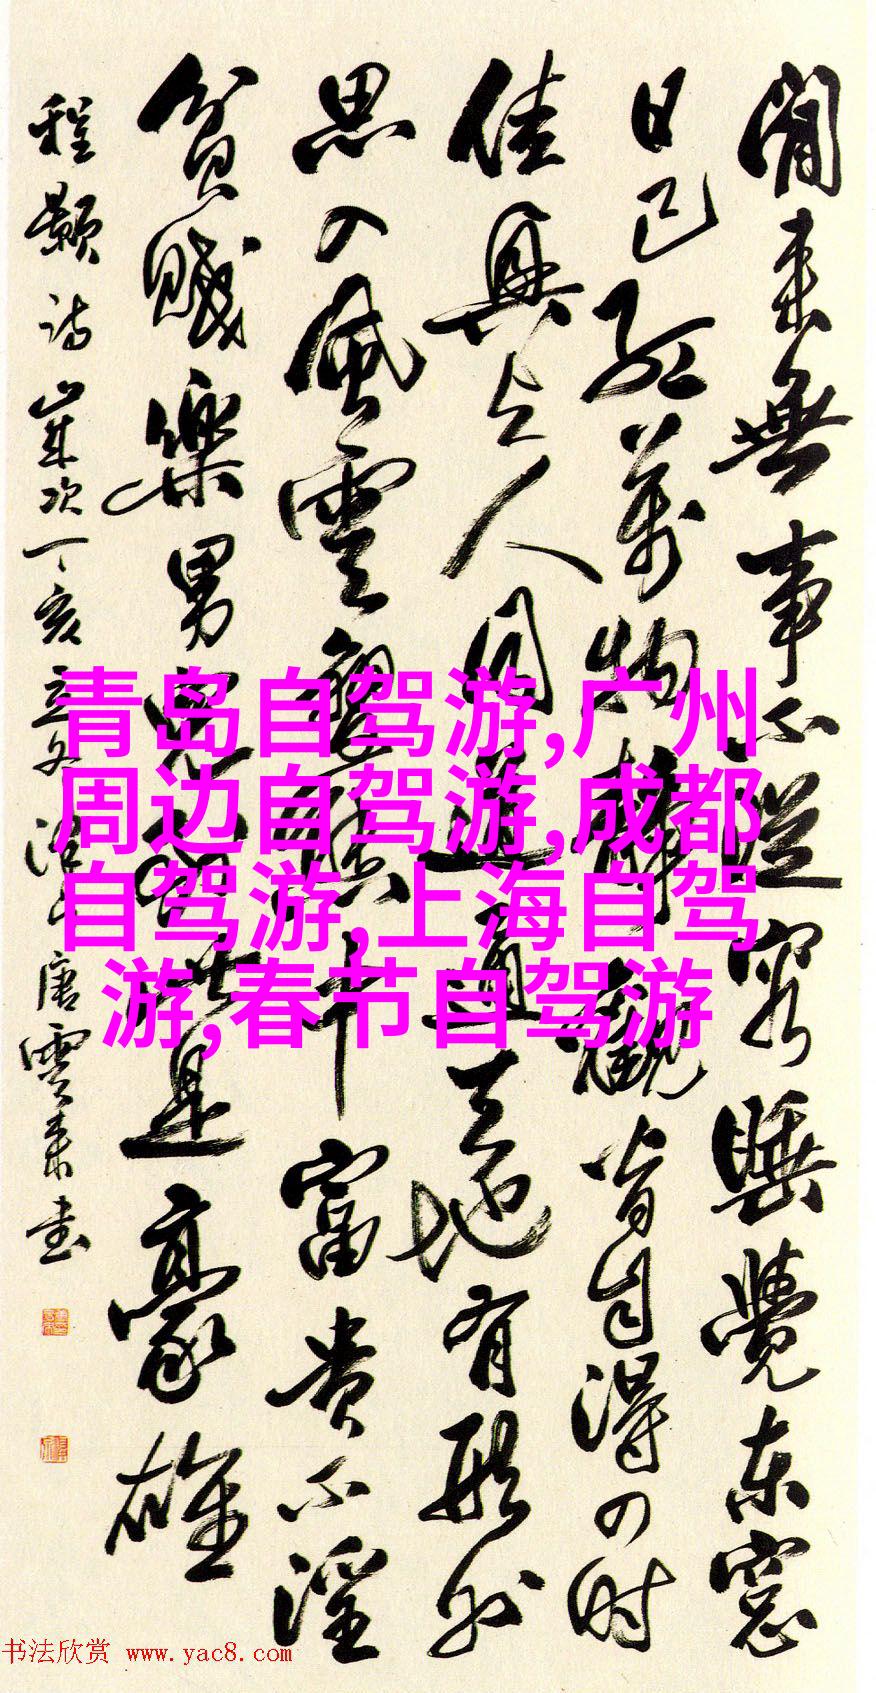 閒来無事不從容睡覺东窓
日已紅萬物静觀皆自得四时
佳興与人同道通天地有形外
思入風雲變態中富貴不淫
貧賤樂男兒到此是豪雄
程颢诗岁次丁亥唐雲来书
青岛自驾游,广州
周边自驾游,成都
自驾游,上海自驾
游,春节自驾游
书法欣赏 www.yac8.com